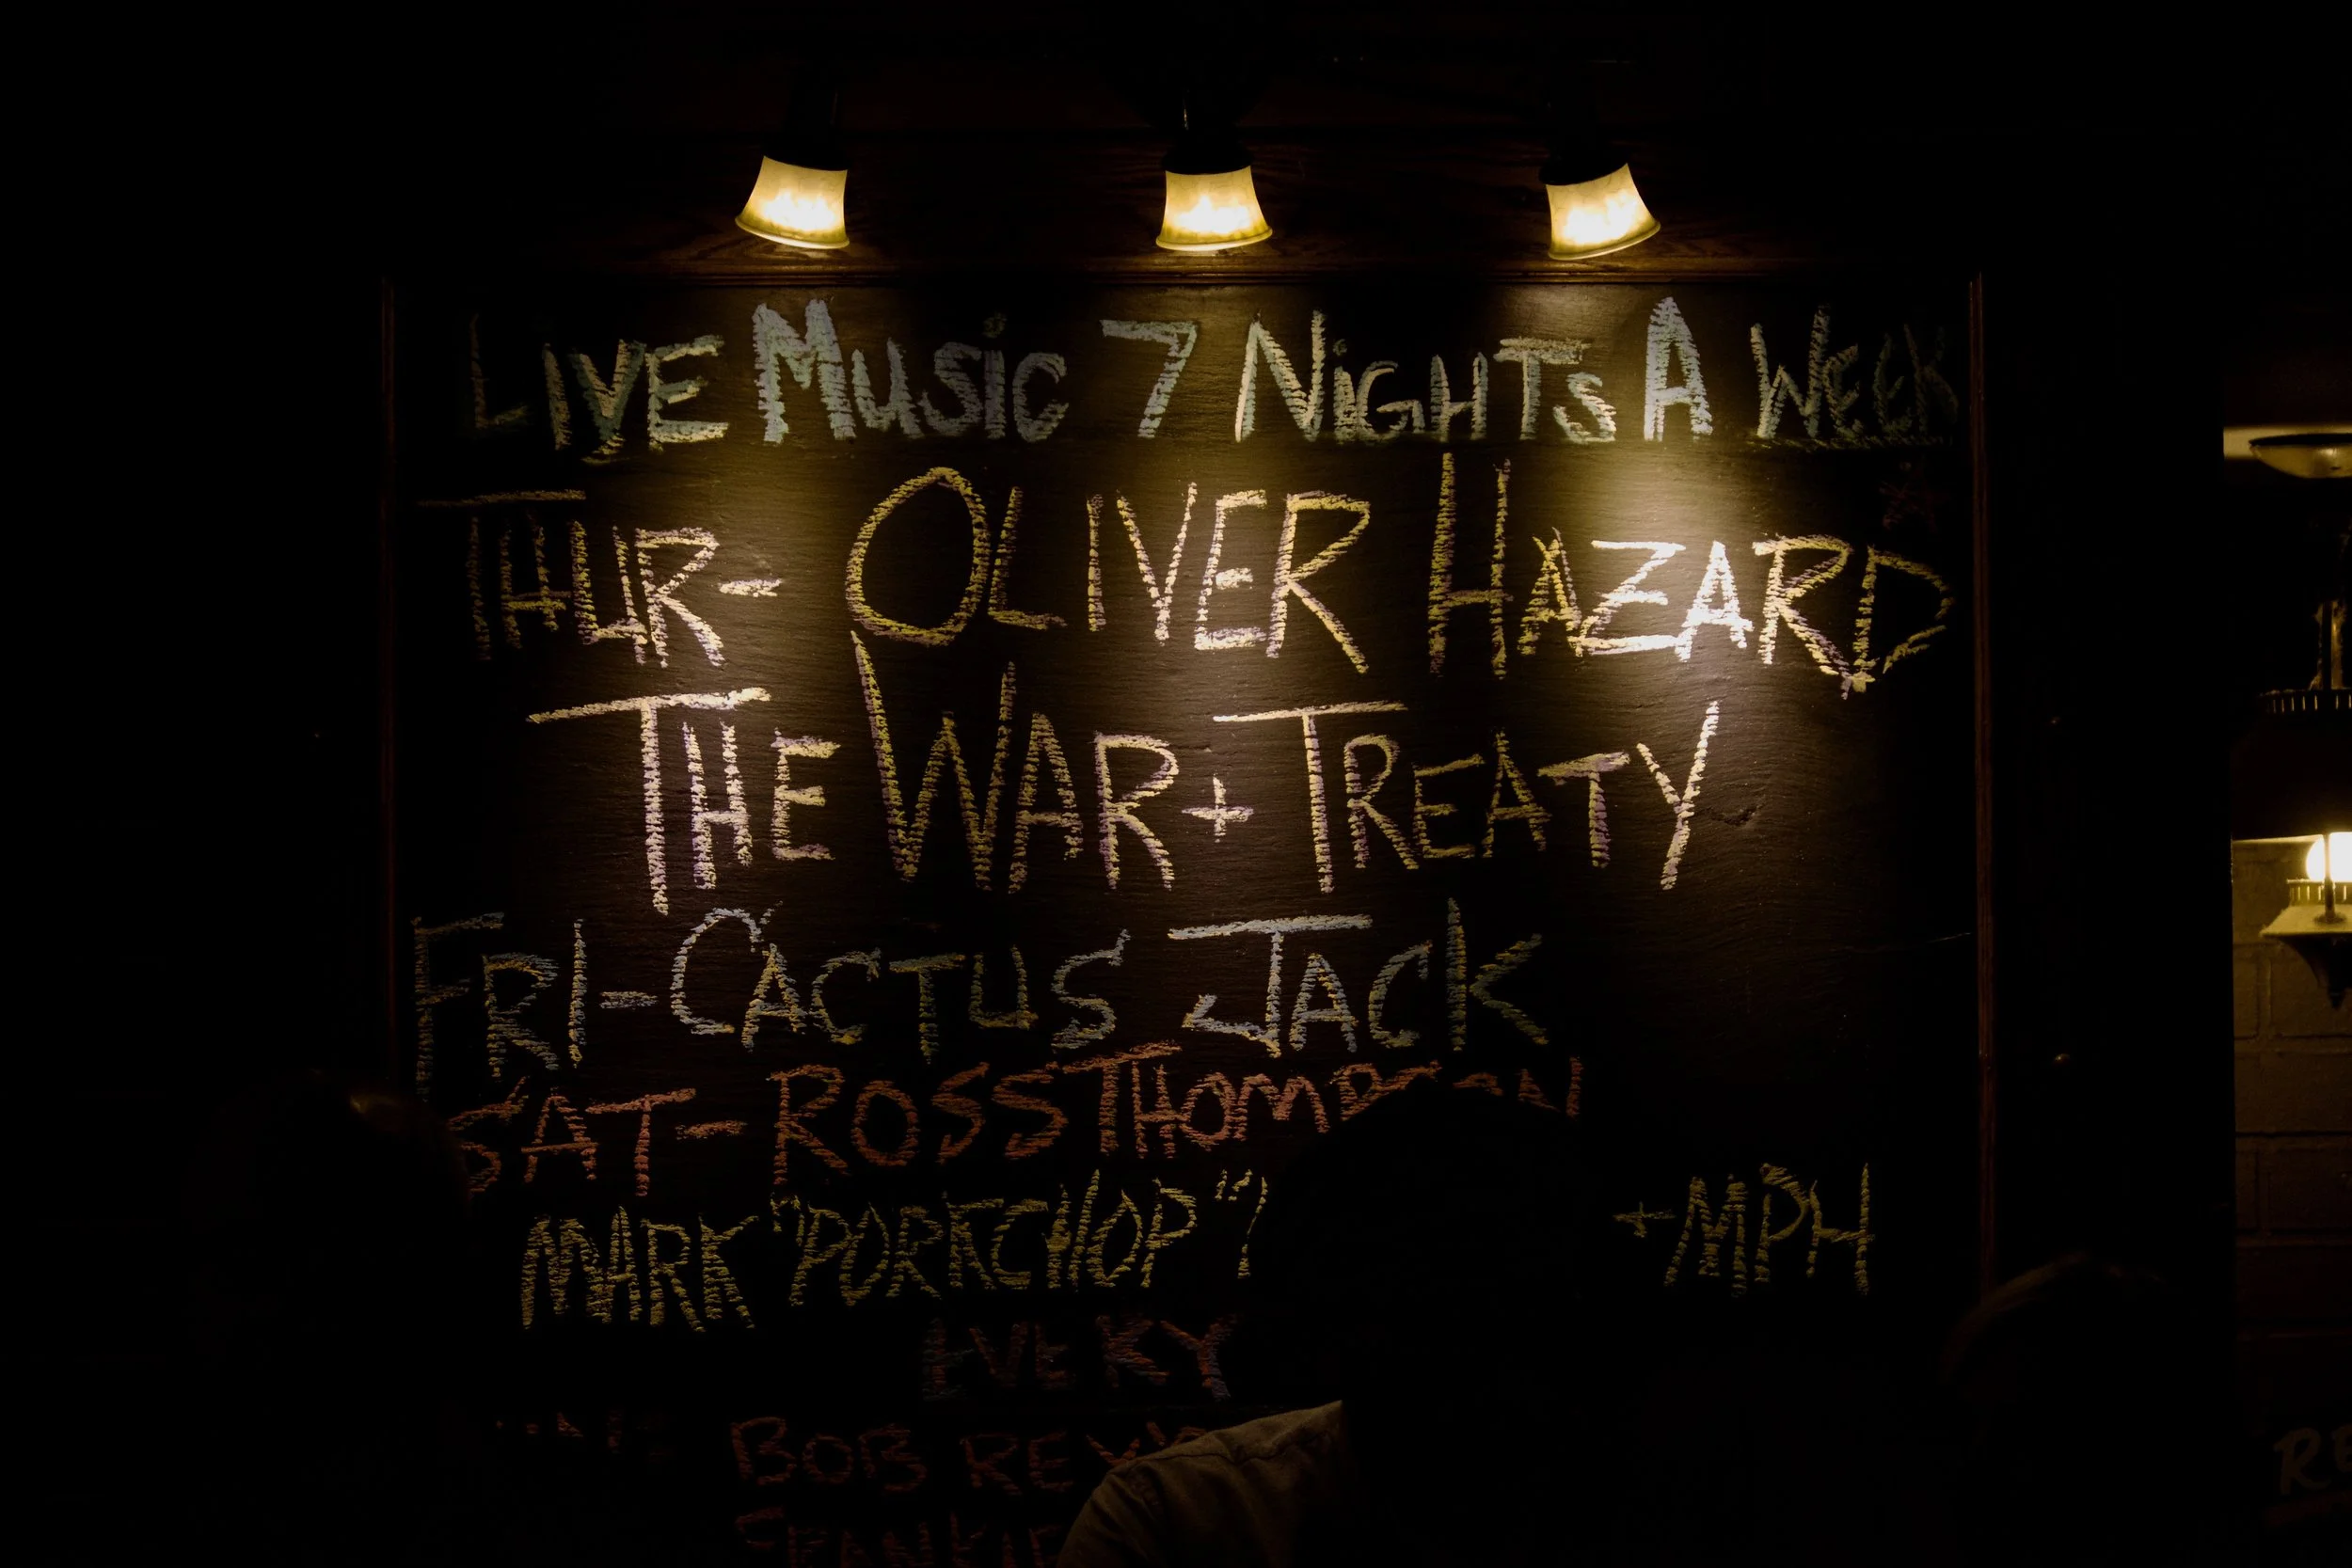 LIVE MUSIC 7 NIGHTS A WEEK
THUR- OLIVER HAZARD
THE WAR + TREATY
FRI- CACTUS JACK
SAT- ROSS THOMPSON
MARK "PORKCHOP" +MPH
BOB